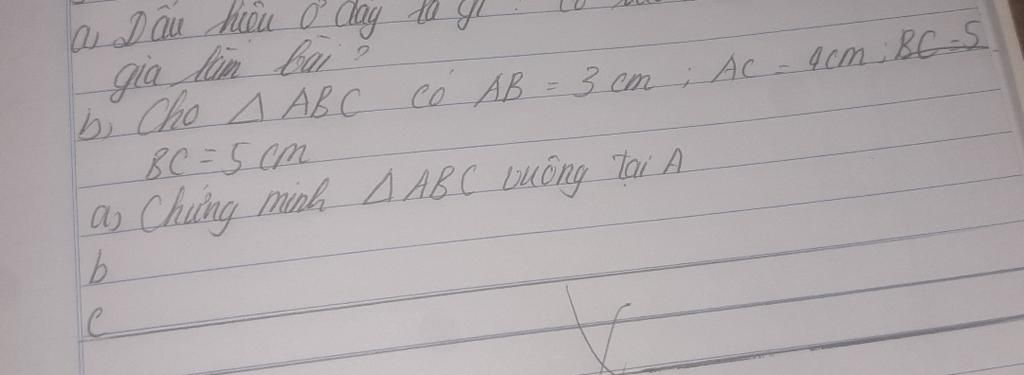 a, Dấu hiệu ở đây là gì? Có
gia làm bài?
b, Cho △ ABC có AB = 3 cm ; AC = 4cm ; BC = 5
BC = 5 cm
a, Chứng minh △ ABC vuông tại A
b
c